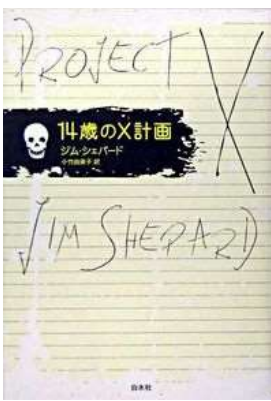 PROJECT
X
14歳のX計画
ジム・シェパード
小竹由美子 訳
JIM SHEPARD
白水社